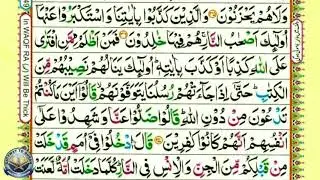 وَلَا هُمْ يَحْزَنُوْنَ وَالَّذِيْنَ كَذَّبُوْا بِاٰيٰتِنَا وَاسْتَكْبَرُوْا عَنْهَاۤ
اُولٰٓئِكَ اَصْحٰبُ النَّارِ هُمْ فِيْهَا خٰلِدُوْنَ فَمَنْ اَظْلَمُ مِمَّنِ افْتَرٰى
عَلَى اللّٰهِ كَذِبًا اَوْ كَذَّبَ بِاٰيٰتِهٖ اُولٰٓئِكَ يَنَالُهُمْ نَصِيْبُهُمْ مِّنَ
الْكِتٰبِ حَتّٰۤى اِذَا جَآءَتْهُمْ رُسُلُنَا يَتَوَفَّوْنَهُمْ قَالُوْۤا اَيْنَ مَا كُنْتُمْ
تَدْعُوْنَ مِنْ دُوْنِ اللّٰهِ قَالُوْا ضَلُّوْا عَنَّا وَشَهِدُوْا عَلٰۤى
اَنْفُسِهِمْ اَنَّهُمْ كَانُوْا كٰفِرِيْنَ قَالَ ادْخُلُوْا فِيْۤ اُمَمٍ قَدْ خَلَتْ
مِنْ قَبْلِكُمْ مِّنَ الْجِنِّ وَالْاِنْسِ فِي النَّارِ كُلَّمَا دَخَلَتْ اُمَّةٌ لَّعَنَتْ
In WAQF RA
Will Be Thick